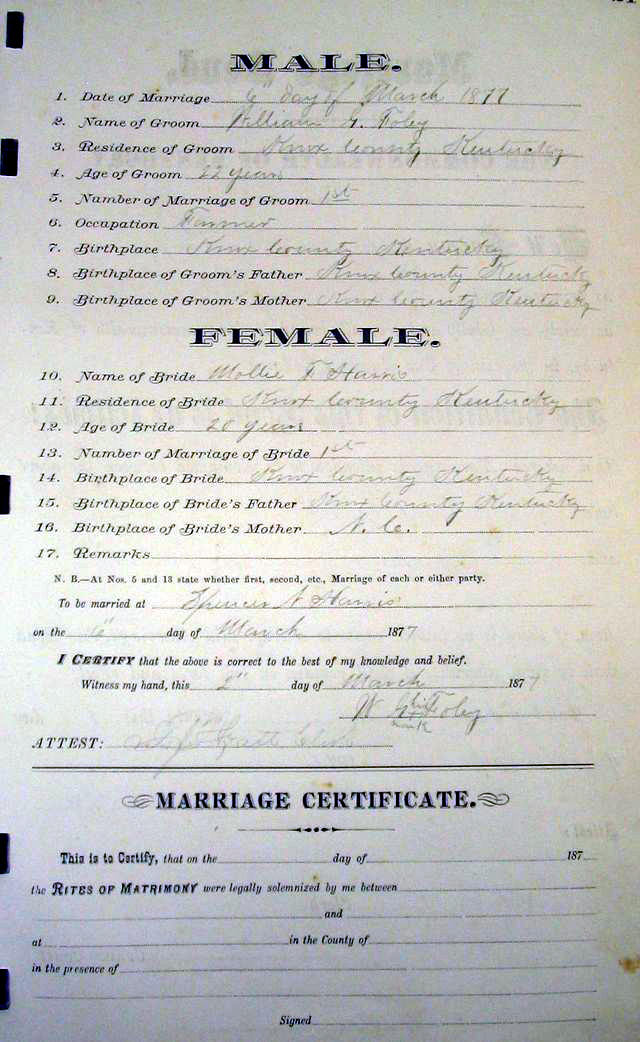 MALE.
1. Date of Marriage 6" day of March 1877
2. Name of Groom William G. Foley
3. Residence of Groom Knox County Kentucky
4. Age of Groom 22 years
5. Number of Marriage of Groom 1st
6. Occupation Farmer
7. Birthplace Knox County Kentucky
8. Birthplace of Groom's Father Knox County Kentucky
9. Birthplace of Groom's Mother Knox County Kentucky
FEMALE.
10. Name of Bride Mollie F Harris
11. Residence of Bride Knox County Kentucky
12. Age of Bride 20 years
13. Number of Marriage of Bride 1st
14. Birthplace of Bride Knox County Kentucky
15. Birthplace of Bride's Father Knox County Kentucky
16. Birthplace of Bride's Mother N. C.
17. Remarks
N. B.—At Nos. 5 and 13 state whether first, second, etc., Marriage of each or either party.
To be married at Spencer Harris
on the 6" day of March 1877
I CERTIFY that the above is correct to the best of my knowledge and belief.
Witness my hand, this 2" day of March 1877
W G his Foley
mark
ATTEST:
MARRIAGE CERTIFICATE.
This is to Certify, that on the day of 187
the RITES OF MATRIMONY were legally solemnized by me between
and
at in the County of
in the presence of
Signed